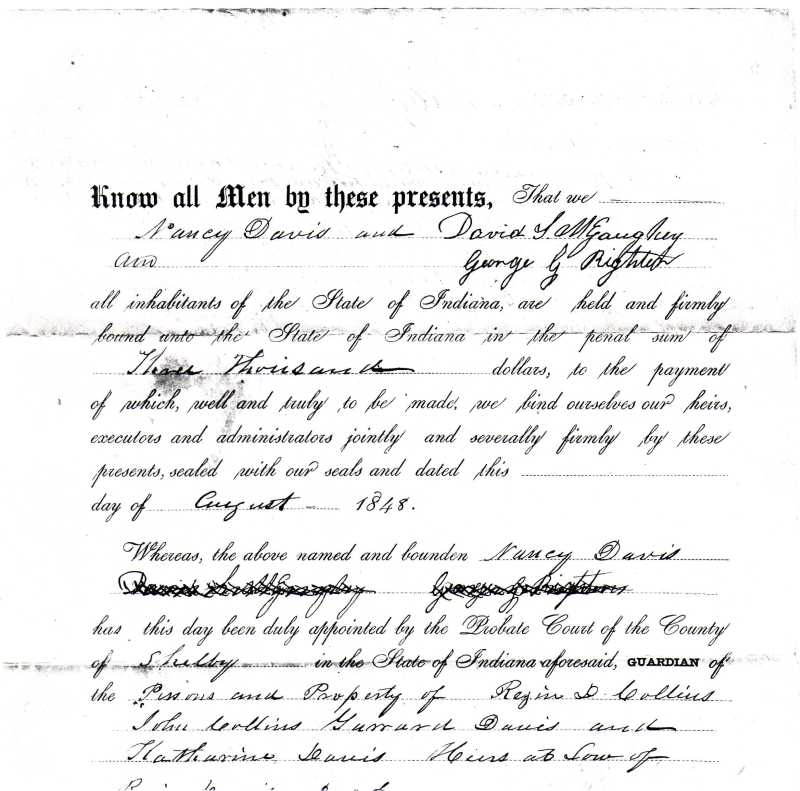 Know all Men by these presents, That we
Nancy Davis and David S. McGaughey
and George G Righter
all inhabitants of the State of Indiana, are held and firmly
bound unto the State of Indiana in the penal sum of
Three Thousand dollars, to the payment
of which, well and truly to be made, we bind ourselves our heirs,
executors and administrators jointly and severally firmly by these
presents, sealed with our seals and dated this
day of August 1848.
Whereas, the above named and bounden Nancy Davis
has this day been duly appointed by the Probate Court of the County
of Shelby in the State of Indiana aforesaid, GUARDIAN of
the Persons and Property of Rezin D Collins
John Collins Garrard Davis and
Katharine Davis Heirs at Law of